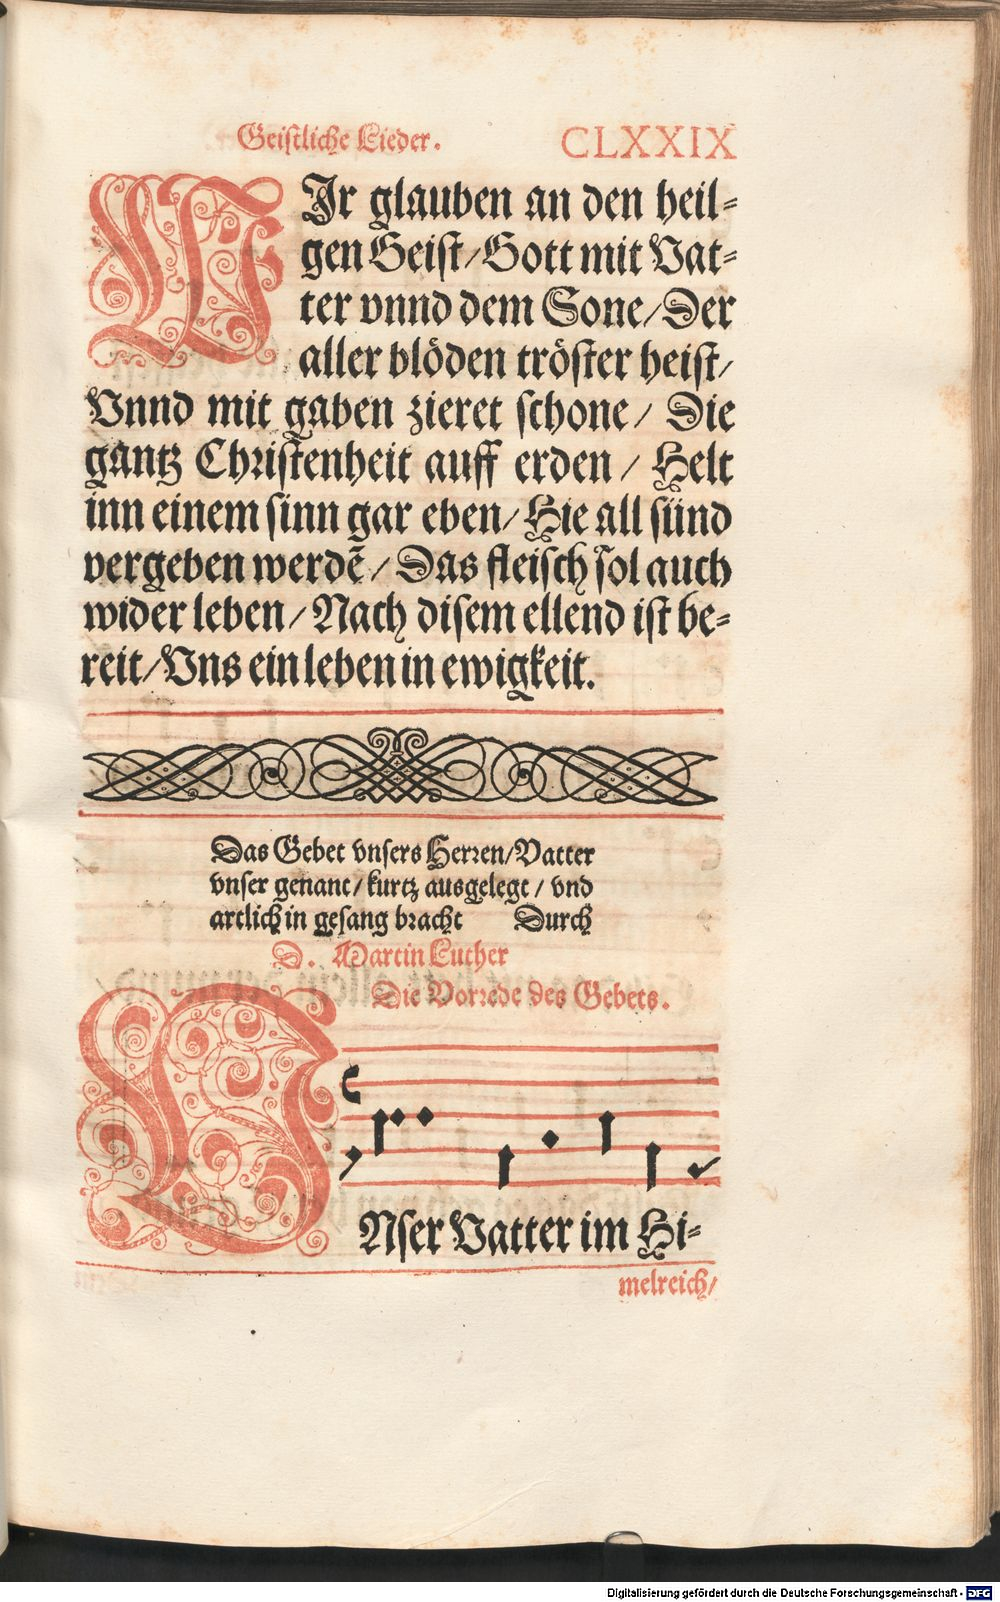 Geistliche Lieder. CLXXIX
WIr glauben an den heil-
gen Geist/ Gott mit Vat-
ter vnnd dem Sone/ Der
aller blöden tröster heist/
Vnnd mit gaben zieret schone/ Die
gantz Christenheit auff erden/ Helt
inn einem sinn gar eben/ Hie all sünd
vergeben werdẽ/ Das fleisch sol auch
wider leben/ Nach disem ellend ist be-
reit/ Vns ein leben in ewigkeit.
Das Gebet vnsers Herren/ Vatter
vnser genant/ kurtz ausgelegt/ vnd
artlich in gesang bracht Durch
D. Martin Luther
Die Vorrede des Gebets.
VNser Vatter im Hi-
melreich/
Digitalisierung gefördert durch die Deutsche Forschungsgemeinschaft - DFG